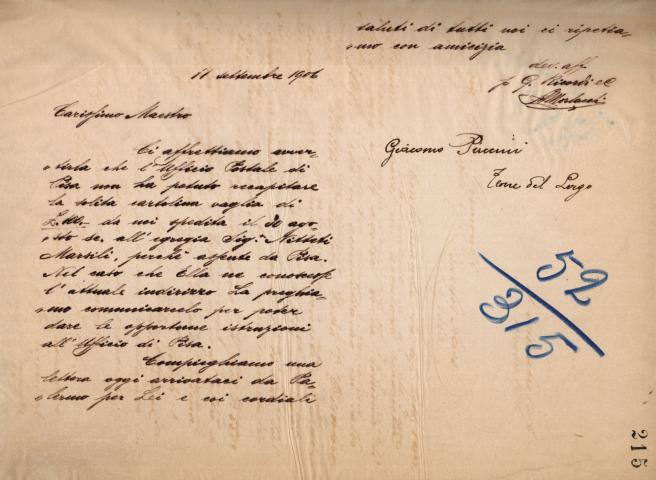 11 settembre 1906
Carissimo Maestro
Ci affrettiamo avver-
tirla che l'Ufficio Postale di
Pisa non ha potuto recapitare
la solita cartolina vaglia di
da noi spedita il 30 ago-
sto sc. all'egregia Sig.
Marsili, perchè assente da Pisa.
Nel caso che Ella ne conoscesse
l'attuale indirizzo La preghia-
mo communicarcelo per poter
dare le opportune istruzioni
all'Ufficio di Pisa.
Compieghiamo una
lettera oggi arrivataci da Pa-
lermo per Lei e coi cordiali
saluti di tutti noi ci ripetia-
mo con amicizia
dev. aff.
p G. Ricordi e C
Giacomo Puccini
Torre del Lago
52
315
215